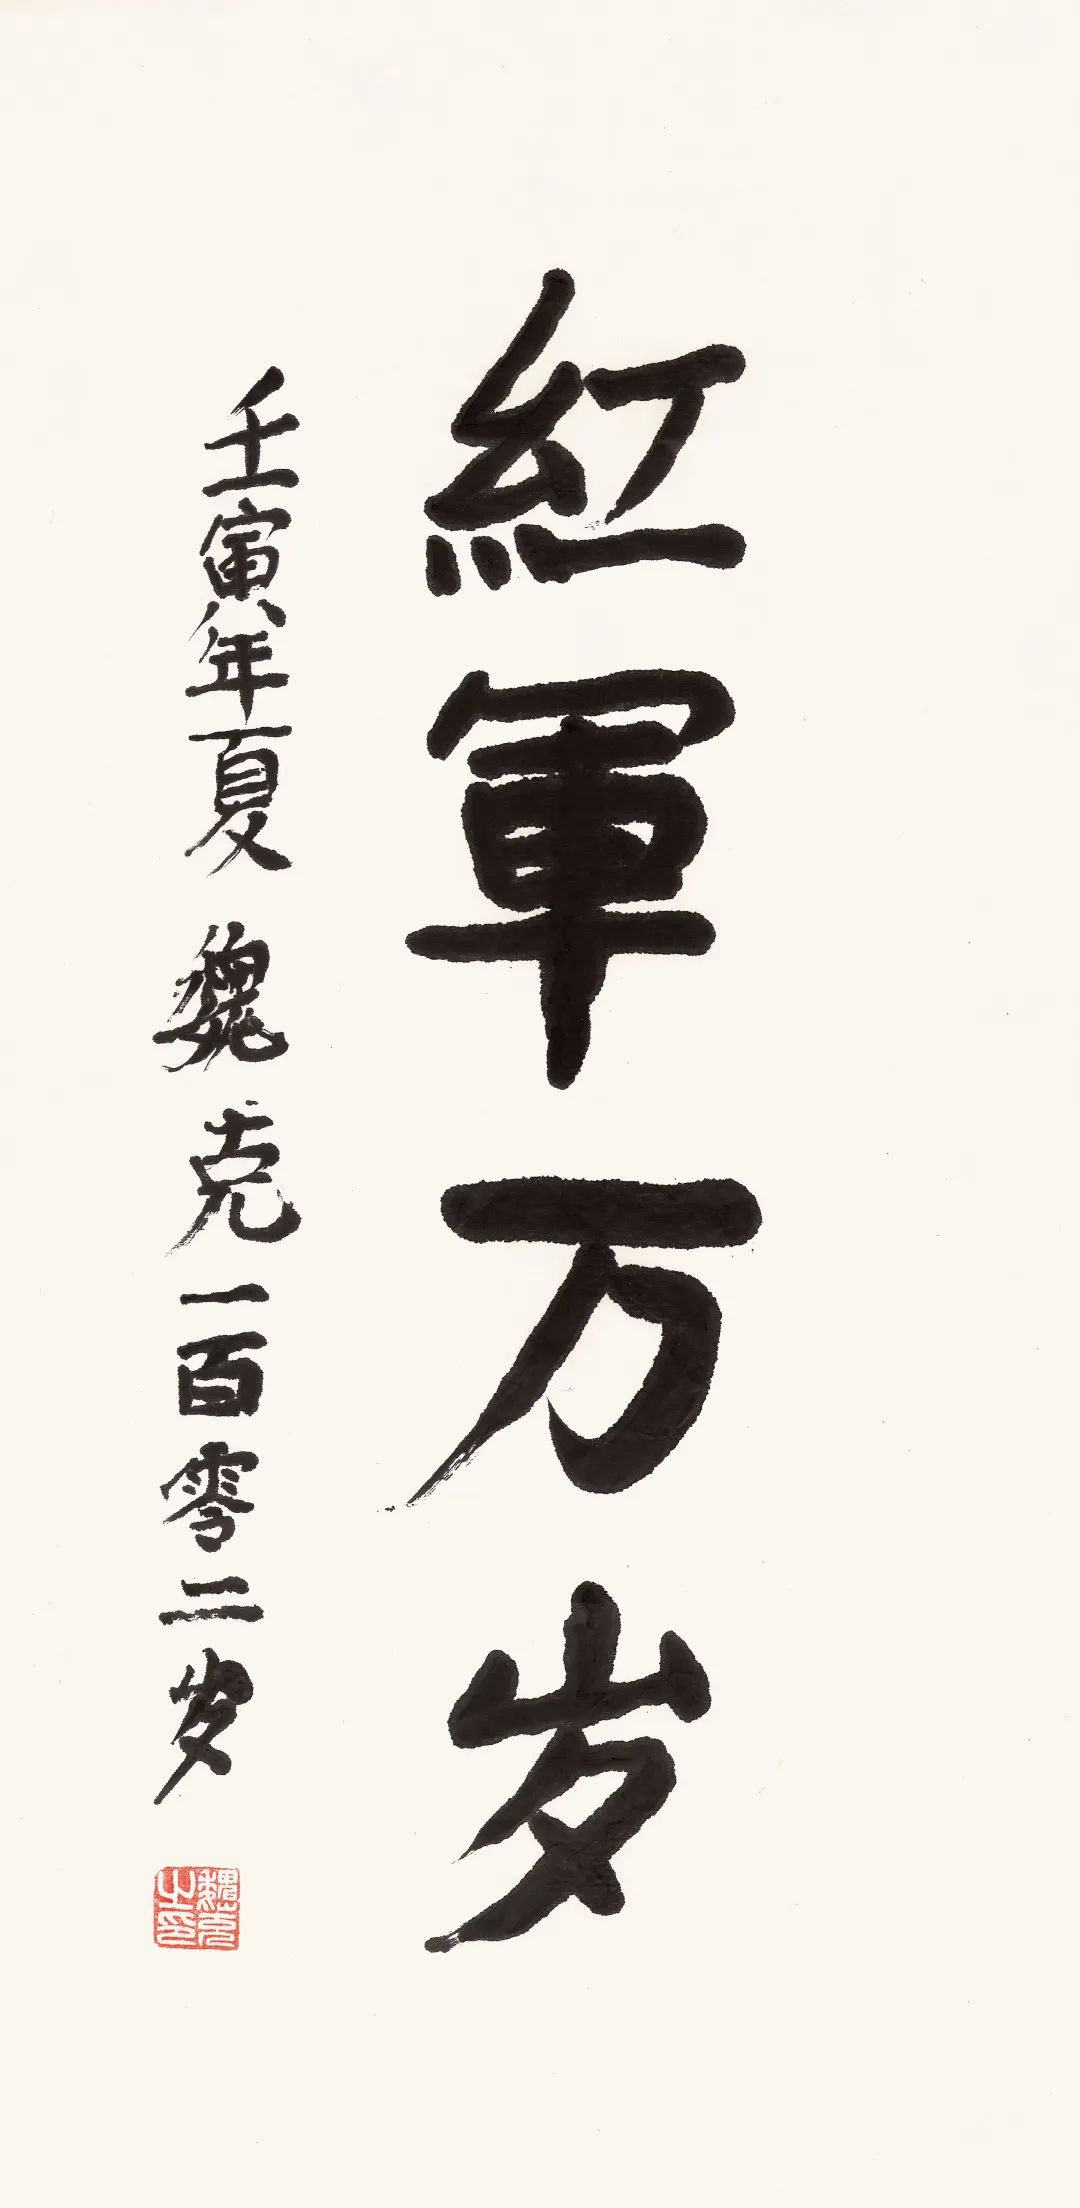 紅軍万岁
壬寅年夏 魏克一百零二岁
魏克之印